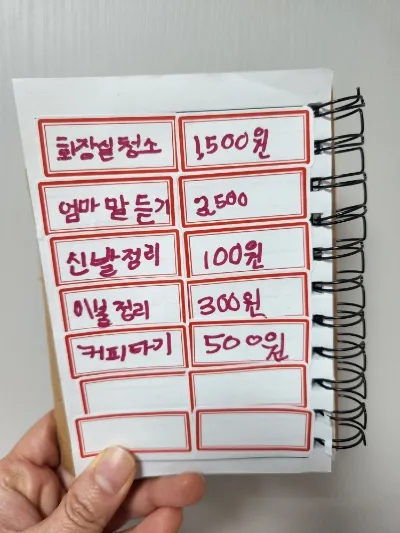 화장실청소 1,500원
엄마 말 듣기 2,500
신발정리 100원
이불정리 300원
커피타기 500원